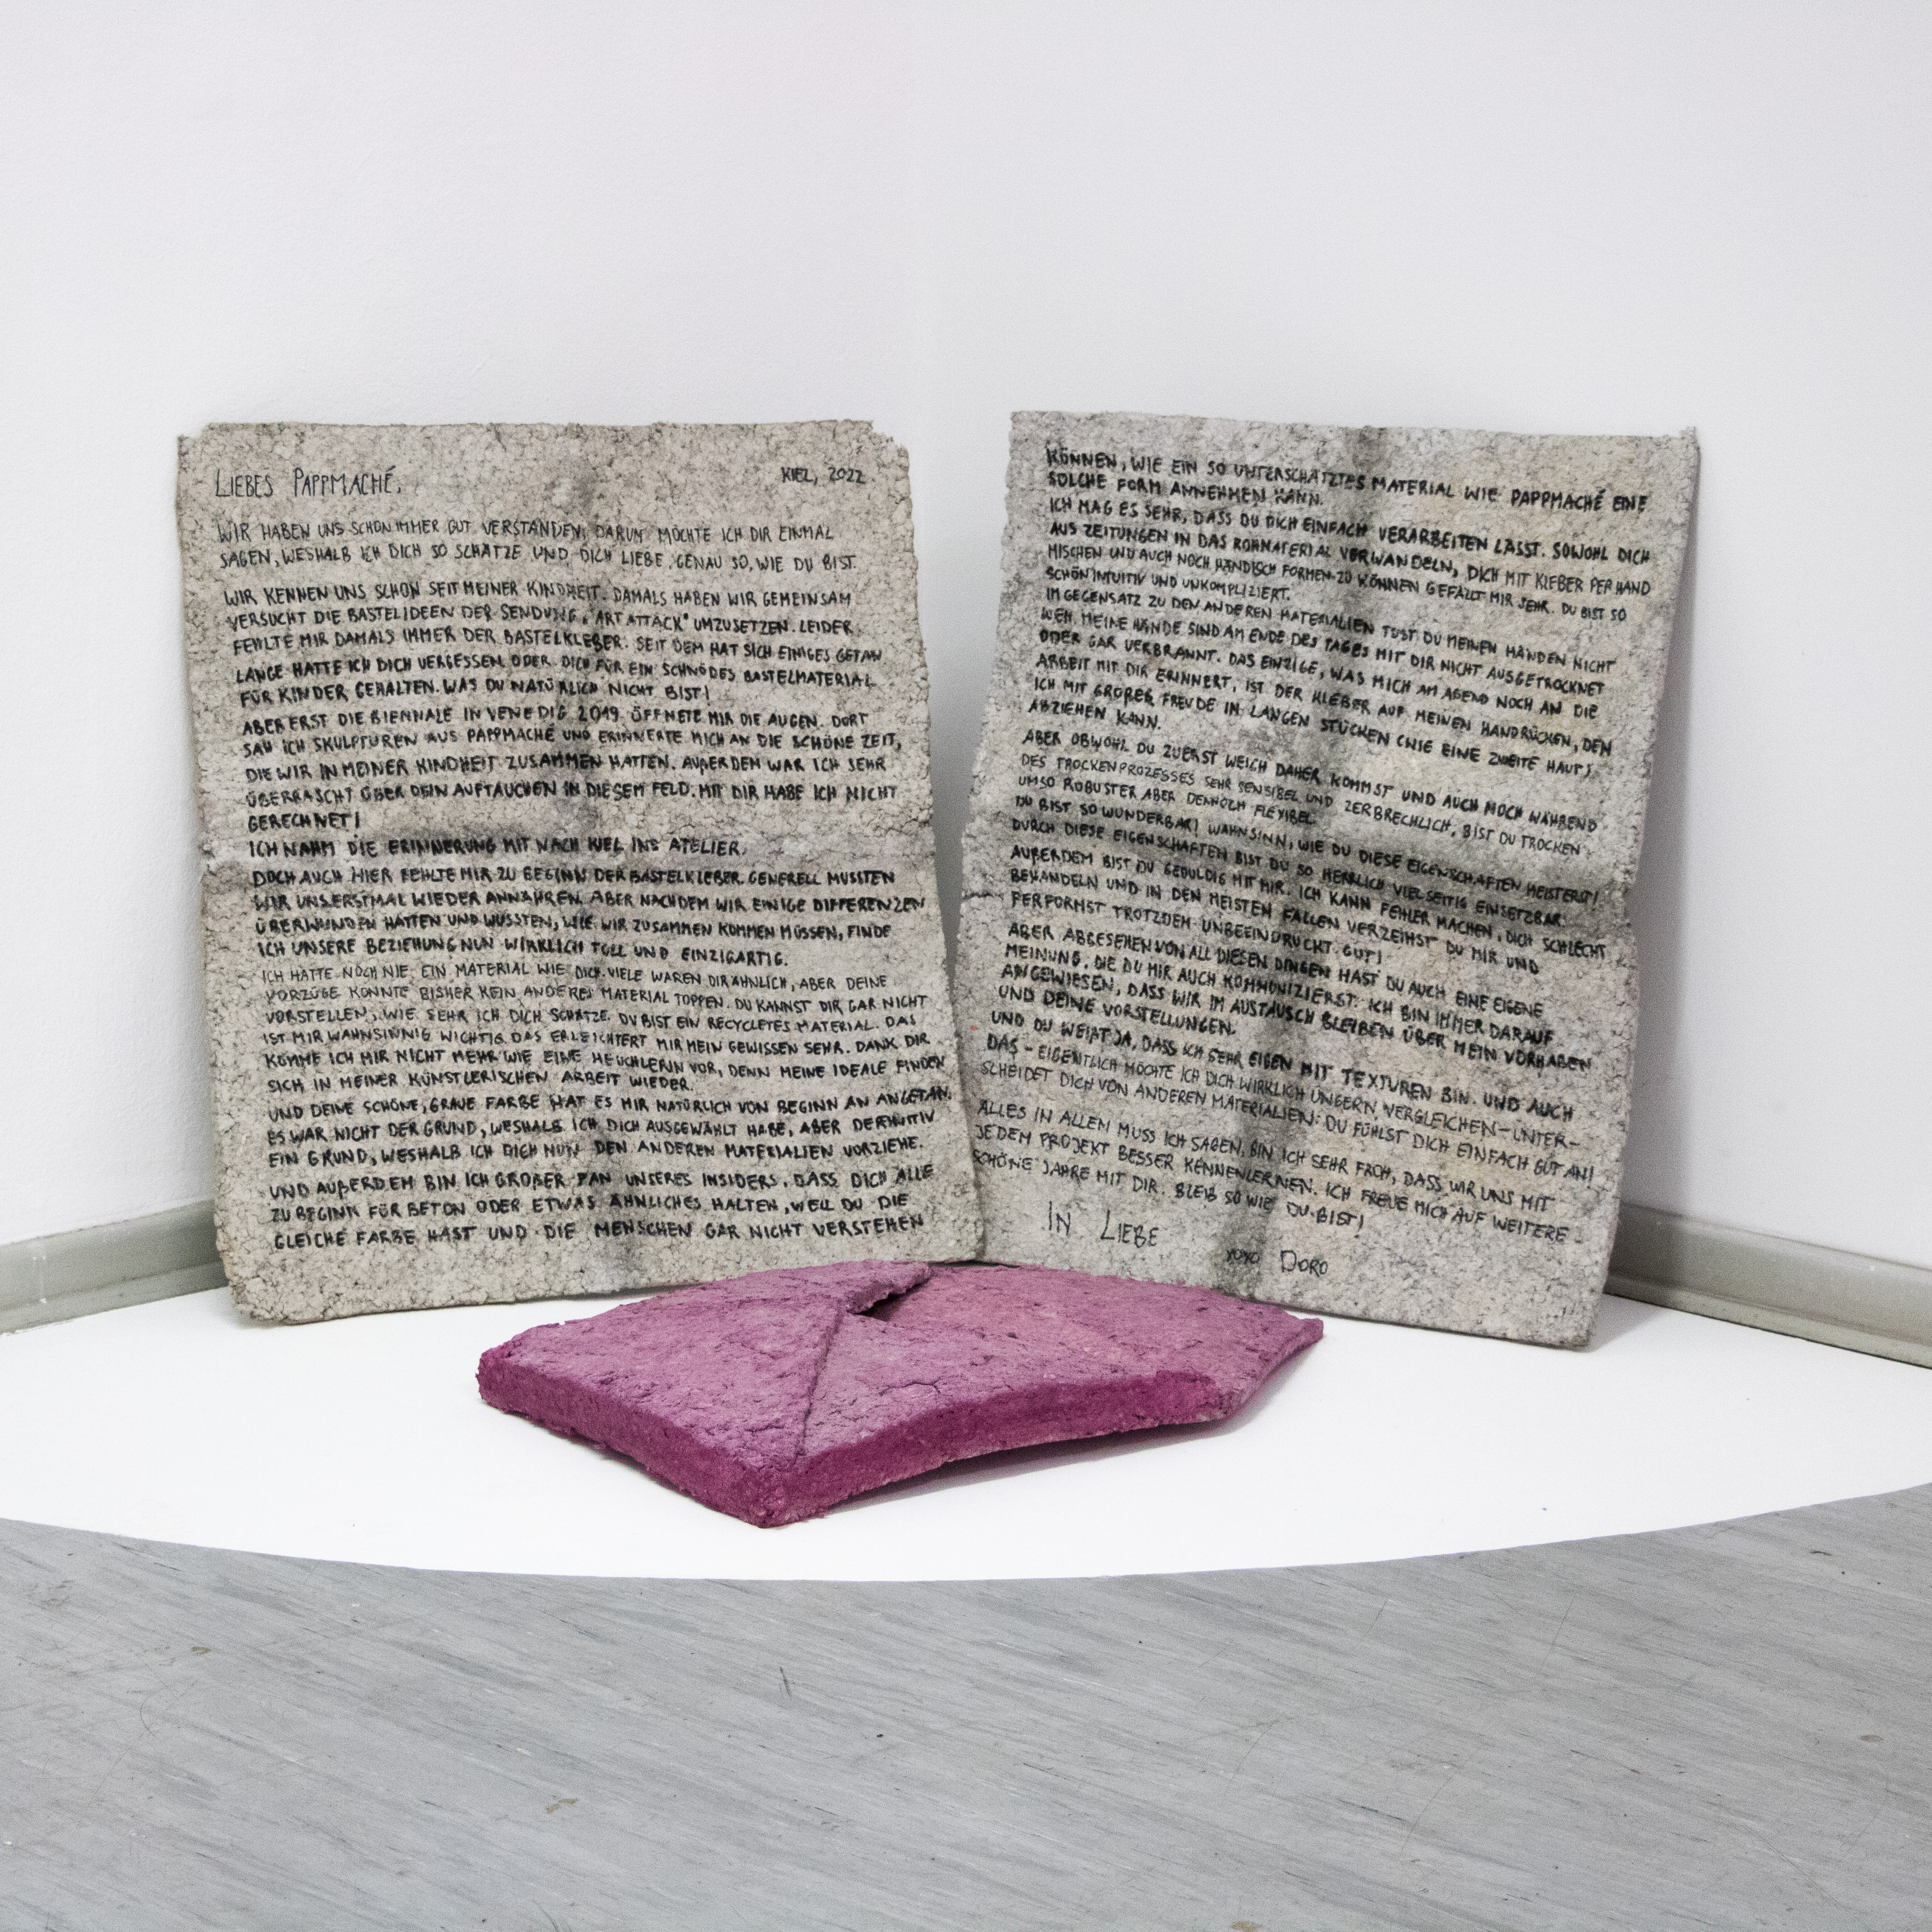 LIEBES PAPPMACHÉ,
KIEL, 2022
WIR HABEN UNS SCHON IMMER GUT VERSTANDEN, DARUM MÖCHTE ICH DIR EINMAL
SAGEN, WESHALB ICH DICH SO SCHÄTZE UND DICH LIEBE, GENAU SO, WIE DU BIST.
WIR KENNEN UNS SCHON SEIT MEINER KINDHEIT. DAMALS HABEN WIR GEMEINSAM
VERSUCHT DIE BASTELIDEEN DER SENDUNG "ART ATTACK" UMZUSETZEN. LEIDER
FEHLTE MIR DAMALS IMMER DER BASTELKLEBER. SEIT DEM HAT SICH EINIGES GETAN
LANGE HATTE ICH DICH VERGESSEN ODER DICH FÜR EIN SCHNÖDES BASTELMATERIAL
FÜR KINDER GEHALTEN. WAS DU NATÜRLICH NICHT BIST!
ABER ERST DIE BIENNALE IN VENEDIG 2019 ÖFFNETE MIR DIE AUGEN. DORT
SAH ICH SKULPTUREN AUS PAPPMACHÉ UND ERINNERTE MICH AN DIE SCHÖNE ZEIT,
DIE WIR IN MEINER KINDHEIT ZUSAMMEN HATTEN. AUßERDEM WAR ICH SEHR
ÜBERRASCHT ÜBER DEIN AUFTAUCHEN IN DIESEM FELD. MIT DIR HABE ICH NICHT
GERECHNET!
ICH NAHM DIE ERINNERUNG MIT NACH KIEL INS ATELIER.
DOCH AUCH HIER FEHLTE MIR ZU BEGINN DER BASTELKLEBER. GENERELL MUSSTEN
WIR UNS ERSTMAL WIEDER ANNÄHREN. ABER NACHDEM WIR EINIGE DIFFERENZEN
ÜBERWUNDEN HATTEN UND WUSSTEN, WIE WIR ZUSAMMEN KOMMEN MÜSSEN, FINDE
ICH UNSERE BEZIEHUNG NUN WIRKLICH TOLL UND EINZIGARTIG.
ICH HATTE NOCH NIE EIN MATERIAL WIE DICH. VIELE WAREN DIR ÄHNLICH, ABER DEINE
VORZÜGE KONNTE BISHER KEIN ANDERES MATERIAL TOPPEN. DU KANNST DIR GAR NICHT
VORSTELLEN, WIE SEHR ICH DICH SCHÄTZE. DU BIST EIN RECYCLETES MATERIAL. DAS
IST MIR WAHNSINNIG WICHTIG. DAS ERLEICHTERT MIR MEIN GEWISSEN SEHR. DANK DIR
KOMME ICH MIR NICHT MEHR WIE EINE HEUCHLERIN VOR, DENN MEINE IDEALE FINDEN
SICH IN MEINER KÜNSTLERISCHEN ARBEIT WIEDER.
UND DEINE SCHÖNE, GRAUE FARBE HAT ES MIR NATÜRLICH VON BEGINN AN ANGETAN.
ES WAR NICHT DER GRUND, WESHALB ICH DICH AUSGEWÄHLT HABE, ABER DEFINITIV
EIN GRUND, WESHALB ICH DICH NUN DEN ANDEREN MATERIALIEN VORZIEHE.
UND AUßERDEM BIN ICH GROßER FAN UNSERES INSIDERS, DASS DICH ALLE
ZU BEGINN FÜR BETON ODER ETWAS ÄHNLICHES HALTEN, WEIL DU DIE
GLEICHE FARBE HAST UND DIE MENSCHEN GAR NICHT VERSTEHEN
KÖNNEN, WIE EIN SO UNTERSCHÄTZTES MATERIAL WIE PAPPMACHÉ EINE
SOLCHE FORM ANNEHMEN KANN.
ICH MAG ES SEHR, DASS DU DICH EINFACH VERARBEITEN LÄSST. SOWOHL DICH
AUS ZEITUNGEN IN DAS ROHMATERIAL VERWANDELN, DICH MIT KLEBER PER HAND
MISCHEN UND AUCH NOCH HÄNDISCH FORMEN ZU KÖNNEN GEFÄLLT MIR SEHR. DU BIST SO
SCHÖN INTUITIV UND UNKOMPLIZIERT.
IM GEGENSATZ ZU DEN ANDEREN MATERIALIEN TUST DU MEINEN HÄNDEN NICHT
WEH. MEINE HÄNDE SIND AM ENDE DES TAGES MIT DIR NICHT AUSGETROCKNET
ODER GAR VERBRANNT. DAS EINZIGE, WAS MICH AM ABEND NOCH AN DIE
ARBEIT MIT DIR ERINNERT, IST DER KLEBER AUF MEINEN HANDRÜCKEN, DEN
ICH MIT GROßER FREUDE IN LANGEN STÜCKEN (WIE EINE ZWEITE HAUT)
ABZIEHEN KANN.
ABER OBWOHL DU ZUERST WEICH DAHER KOMMST UND AUCH NOCH WÄHREND
DES TROCKENPROZESSES SEHR SENSIBEL UND ZERBRECHLICH, BIST DU TROCKEN
UMSO ROBUSTER ABER DENNOCH FLEXIBEL.
DU BIST SO WUNDERBAR! WAHNSINN, WIE DU DIESE EIGENSCHAFTEN MEISTERST!
DURCH DIESE EIGENSCHAFTEN BIST DU SO HERRLICH VIELSEITIG EINSETZBAR.
AUßERDEM BIST DU GEDULDIG MIT MIR. ICH KANN FEHLER MACHEN, DICH SCHLECHT
BEHANDELN UND IN DEN MEISTEN FÄLLEN VERZEIHST DU MIR UND
PERFORMST TROTZDEM UNBEEINDRUCKT GUT!
ABER ABGESEHEN VON ALL DIESEN DINGEN HAST DU AUCH EINE EIGENE
MEINUNG, DIE DU MIR AUCH KOMMUNIZIERST. ICH BIN IMMER DARAUF
ANGEWIESEN, DASS WIR IM AUSTAUSCH BLEIBEN ÜBER MEIN VORHABEN
UND DEINE VORSTELLUNGEN.
UND DU WEIßT JA, DASS ICH SEHR EIGEN MIT TEXTUREN BIN. UND AUCH
DAS - EIGENTLICH MÖCHTE ICH DICH WIRKLICH UNGERN VERGLEICHEN - UNTER-
SCHEIDET DICH VON ANDEREN MATERIALIEN: DU FÜHLST DICH EINFACH GUT AN!
ALLES IN ALLEM MUSS ICH SAGEN, BIN ICH SEHR FROH, DASS WIR UNS MIT
JEDEM PROJEKT BESSER KENNENLERNEN. ICH FREUE MICH AUF WEITERE
SCHÖNE JAHRE MIT DIR. BLEIB SO WIE DU BIST!
IN LIEBE
XOXO DORO